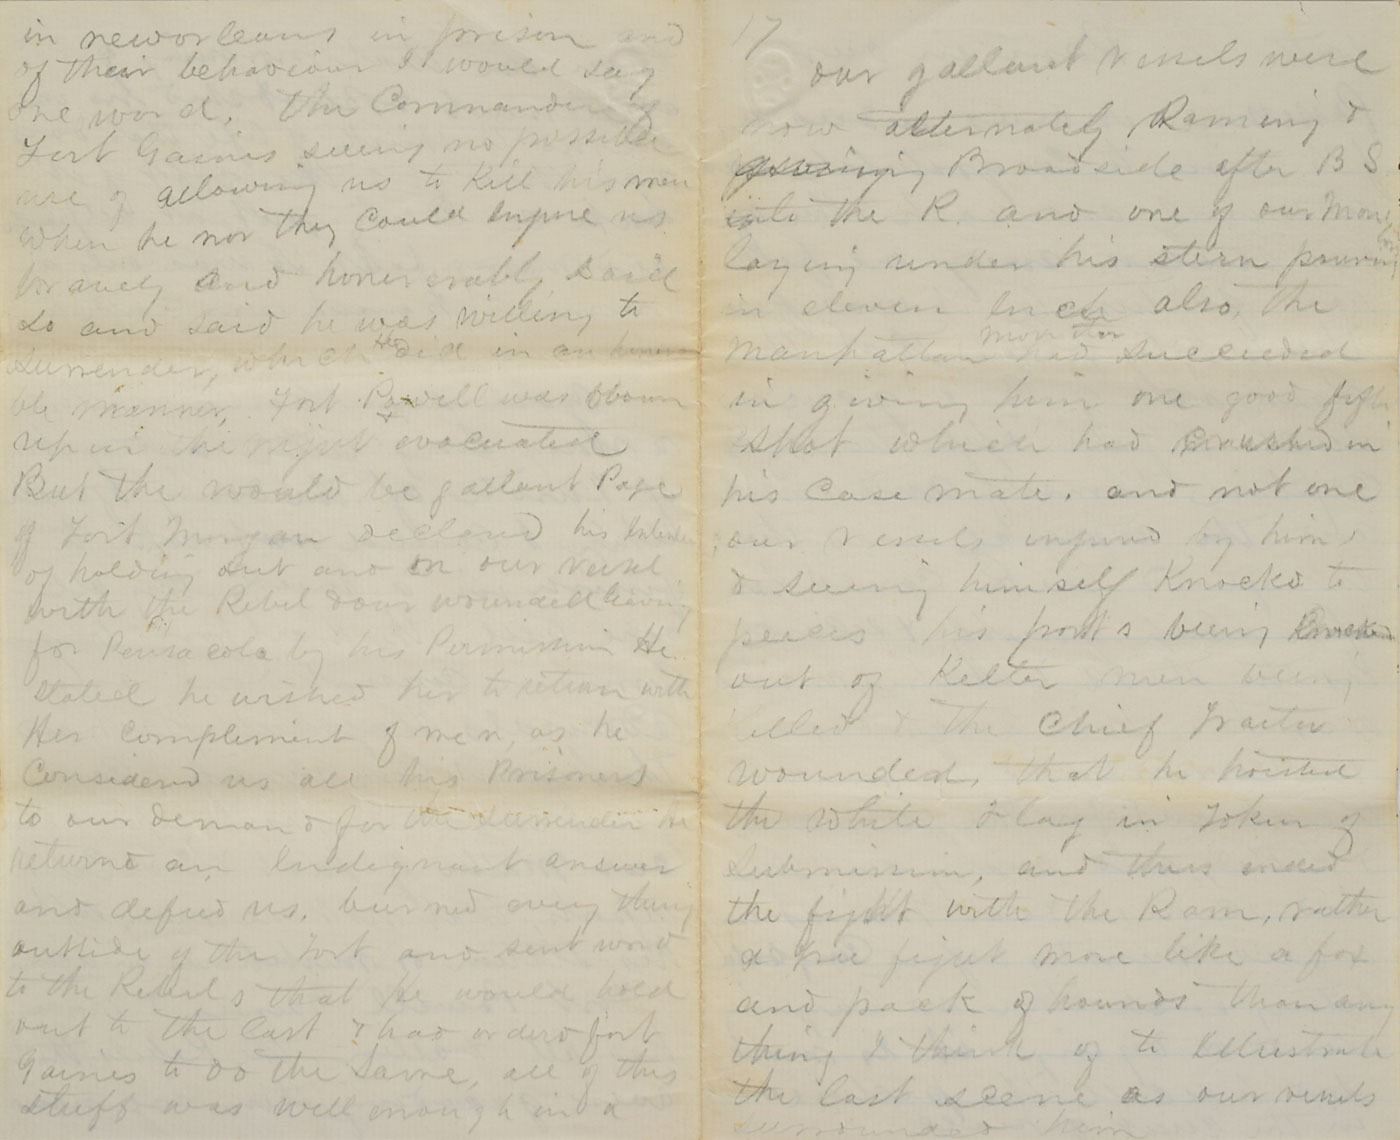 in neworleans in prison and
of their behaviour I would say
one word, the Commander of
Fort Gaines seeing no possible
use of allowing us to Kill his men
when he nor they could Injure us
bravely and honerably said
so and said he was willing to
surrender, which He did in an honora
ble manner, Fort Powell was blown
up in the night evacuated
But the would be gallant Page
of Fort Morgan declared his
of holding out and on our vessel
with the Rebel & our wounded leaving
for Pensacola by his Permission He
stated he wished her to return with
Her compliment of men, as he
Considered us all his Prisoners
to our demand for the surrender he
returnd an Indignant answer
and defied us, burned every thing
outside of the Fort and sent word
to the Rebels that he would hold
out to the last & had orderd fort
Gaines to do the same, all of this
stuff was well enough in a
17
our gallant vessels were
now alternately Raming &
giving Broadside after B S
into the R. and one of our Monitors
laying under his stern pouring
in eleven Inch also, the
Manhattan Monitor had succeeded
in giving him one good fifteen
shot which had crushed in
his Case mate. and not one
our vessels injured by him,
& seeing himself Knockd to
peices his ports being Knocked
out of Kelter men being
killed & the Chief Traitor
wounded, that he hoisted
the White Flag in Token of
Submission, and thus ended
the fight with the Ram, rather
a fight more like a fox
and pack of hounds than any
thing I think of to Illustrate
the last scene as our vessels
surrounded him